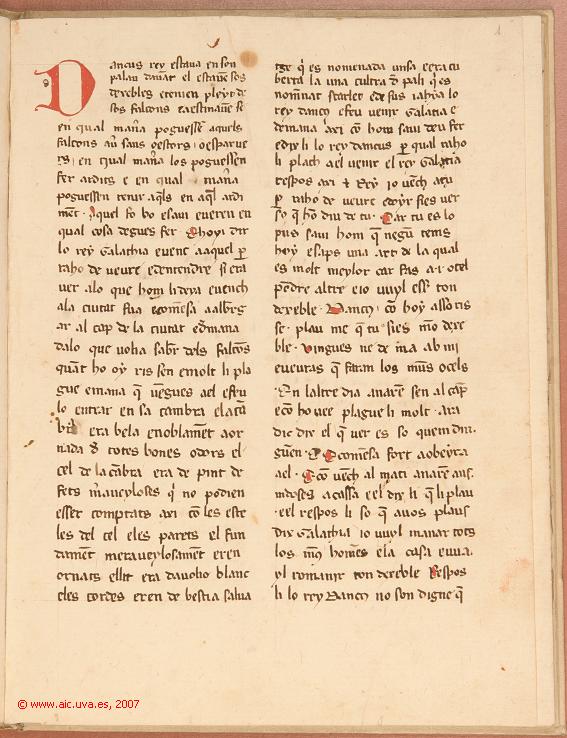 Dancus rey estaua en son
palau dauāt el estauē sos
dexebles e tenien pleyt de
sos falcons e a estimauē se
en qual mañ̃a poguessē aquels
falcons
en qual mañ̃a los poguessen
fer ardits e en qual mañ̃a
poguessen tenir aq̄ls en aq̄l ardi
mēt. Aquel fo bo e saui e ueren en
qual cosa degues fer. E hoy dir
lo rey Galathia e uenc a aquel p̄
raho de veure e dentendre si era
uer alo que hom li deya e uench
ala ciutat sua e comēsa a alb̄rg
ar al cap de la ciutat e dmana
dalo que uolia sab̄r dels falcōs
quāt ho oy ris sen e molt li pla
gue e mana q̄ uēgues a el e feu
lo entrar en sa cambra e la cā
era bela e noblamēt aor
nada d̄ totes bones odors el
cel de la cābra era de pint de
fets marauelyoses q̄ no podien
esser comptats axi cō les este
les del cel e les parets el fun
damēt merauelyosamēt eren
ornats e llit era dauoho blanc
e les cordes eren de bestia salua
tge q̄ es nomenada unsa e era cu
berta la una cultra d̄ pali q̄ es
nomīnat scarlet e de sus
rey dancus e feu uenir Galatia e
demana axi cō hom saui deu fer
e dix li lo rey dancus p̄ qual raho
li plach a el uenir el rey Galatia
respos axi Rey io uēch açi
p̄ raho de veure e doyr si es uer
so q̄ hō diu de tu. Car tu es lo
pus saui hom q̄ negū tems
hoy e saps una art de la qual
es molt meylor car fas .i. ocel
pēdre altre e io uuyl esser ton
dexeble. Dancus cō hoy asso ris
se. plau me q̄ tu sies mō dexe
ble. Vingues ne demā ab mi
e ueuras q̄ faran los meus ocels
En laltre dia anarē sen al cāp
e cō ho uee plague li molt. ara
dic dix el q̄ uer es so quem diu
guen. E comēsa fort a obeyra
a el. E cō uēch al mati anarē
a cassa e el dix li q̄ li plau
e el respos li so q̄ a uos plaus
dix Galathia io uuyl manar tots
los meus homēs e la casa
yl romanir ton dexeble Respos
li lo rey Dancus no son digne q̄
© www.aic.uva.es, 2007